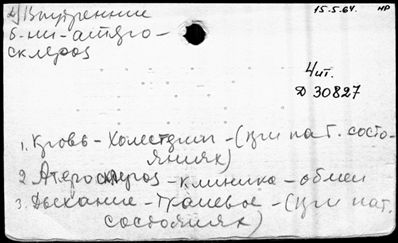 2) Внутренние
б-ни-атеро-
склероз
15-5.64. НР
Чит.
Д 30827
1. Кровь-Холестерин-(при пат. состо-
яниях)
2 Атеросклероз-клиника-обмен
3. Дыхание-Тканевое-(при пат.
состояниях)